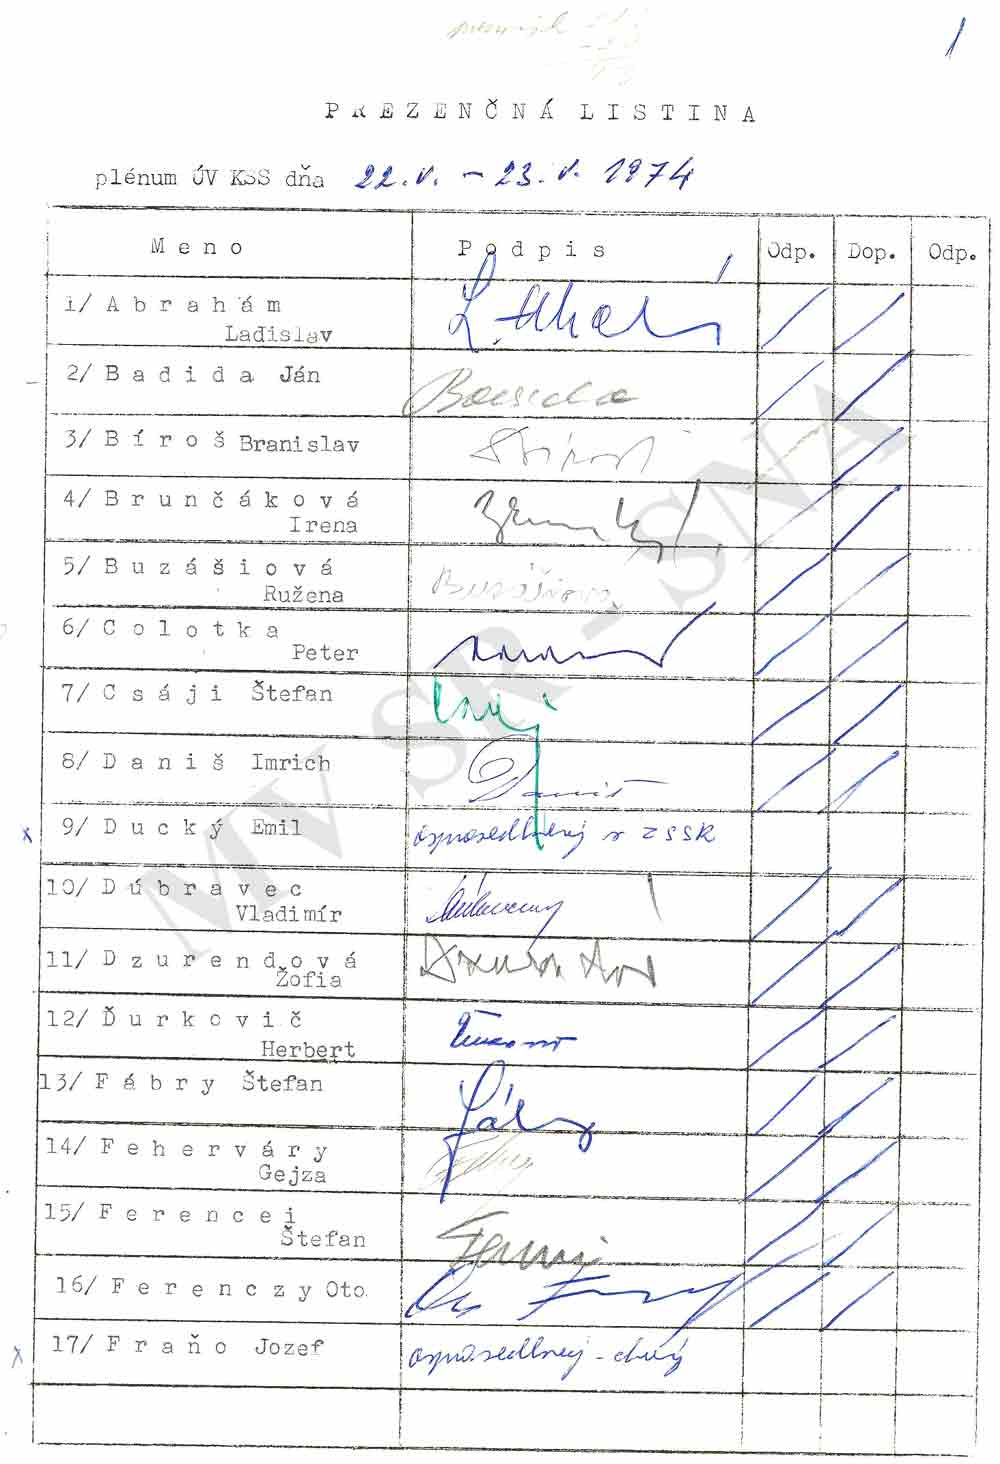 1
PREZENČNÁ LISTINA
plénum ÚV KSS dňa 22.V. - 23.V. 1974
Meno Podpis Odp. Dop. Odp.
1/ Abrahám
Ladislav
2/ Badida Ján
3/ Bíroš Branislav
4/ Brunčáková
Irena
5/ Buzášiová Buzášiová
Ružena
6/ Colotka
Peter
7/ Csáji Štefan
8/ Daniš Imrich Daniš
x 9/ Ducký Emil ospravedlnený v ZSSR
10/ Dúbravec
Vladimír
11/ Dzurendová
Žofia
12/ Ďurkovič
Herbert
13/ Fábry Štefan
14/ Feherváry
Gejza
15/ Ferencei
Štefan
16/ Ferenczy Oto
x 17/ Fraňo Jozef ospravedlnený - chorý
MV SR - SNA